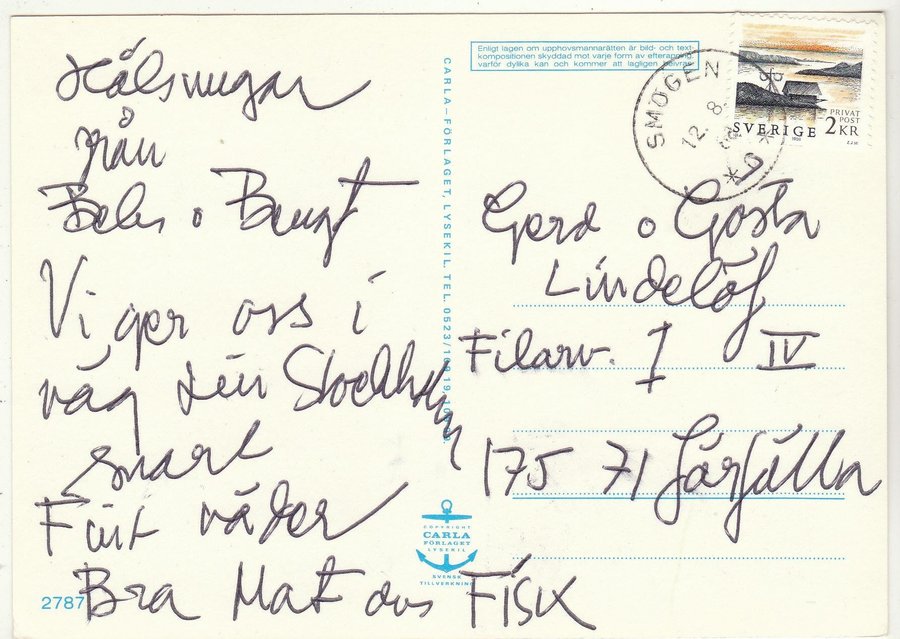 Hälsningar
från
Bebs o Bengt
Vi ger oss i
väg till Stockholm
snart
Fint väder
Bra Mat oss Fisk
2787
CARLA-FÖRLAGET, LYSEKIL. TEL. 0523/
COPYRIGHT
CARLA
FÖRLAGET
LYSEKIL
SVENSK
TILLVERKNING
Enligt lagen om upphovsmannarätten är bild- och text-
kompositionen skyddad mot varje form av efterapning,
varför dylika kan och kommer att lagligen
SMÖGEN
12. 8.
PRIVAT
POST
SVERIGE 2KR
Gerd o Gösta
Lindelöf
Filarv. 1 IV
175 71 Järfälla